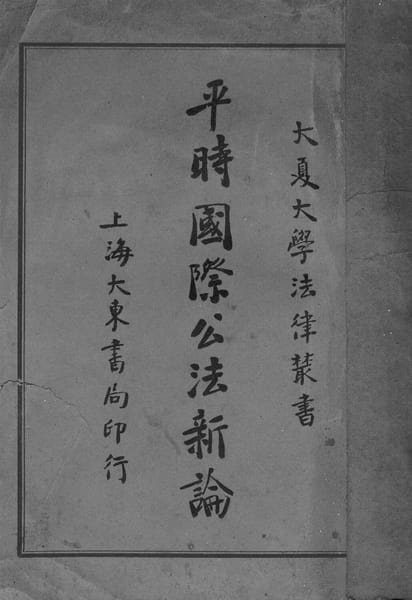 大夏大學法律叢書
平時國際公法新論
上海大東書局印行